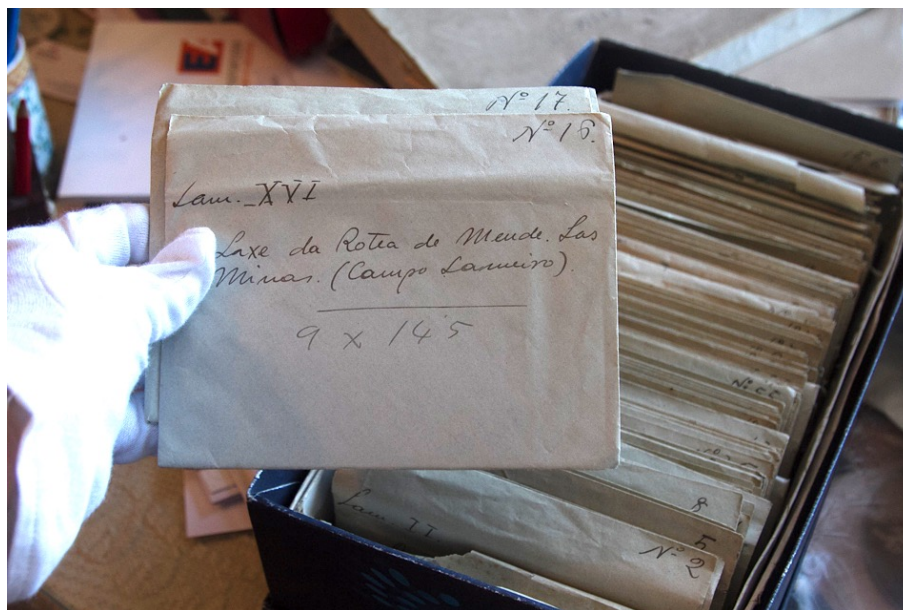 EZ
Nº 17.
Nº 16.
Lam. XVI
Laxe da Rotea de Mende. Las
Minas. (Campo Lameiro).
9 x 145
Lam. II
8
5
Nº 2